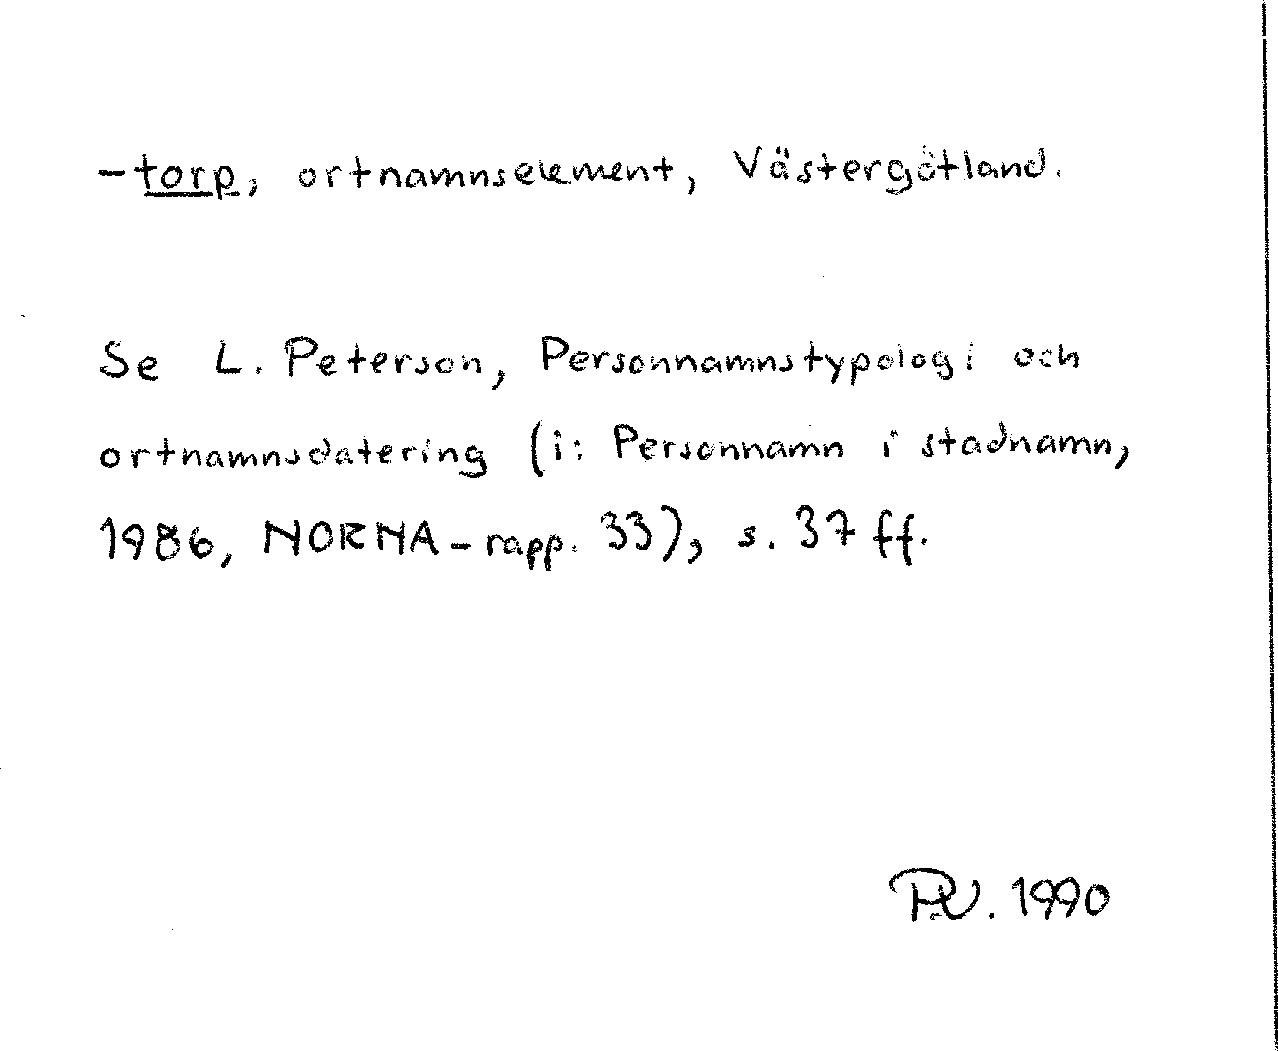 -torp, ortnamnselement, Västergötland.
Se L. Peterson, Personnamnstypologi och
ortnamnsdatering (i: Personnamn i stadnamn,
1986, NORNA-rapp. 33), s. 37 ff.
1990